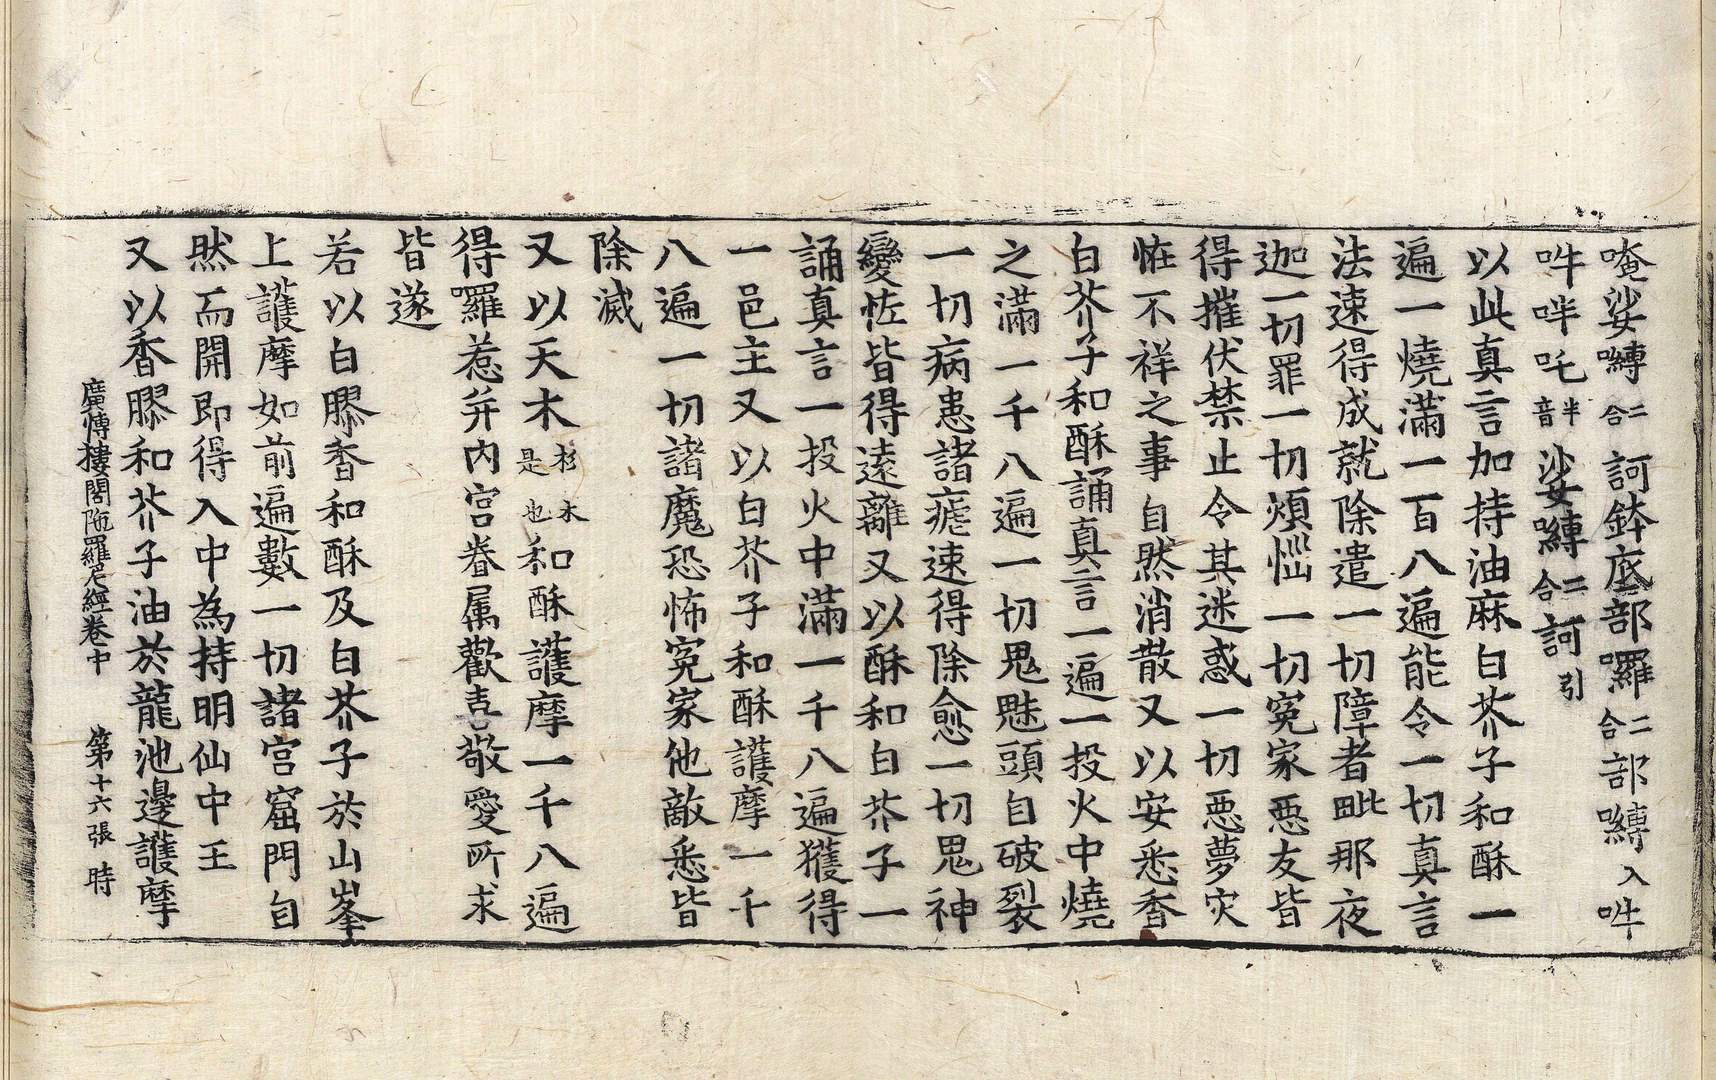 唵娑嚩二合訶鉢底部囉二合部嚩入吽
吽吽吒半音娑嚩二合訶引
以此真言加持油麻白芥子和酥一
遍一燒滿一百八遍能令一切真言
法速得成就除遣一切障者毗那夜
迦一切罪一切煩惱一切冤家惡友皆
得摧伏禁止令其迷惑一切惡夢灾
恠不祥之事自然消散又以安悉香
白芥子和酥誦真言一遍一投火中燒
之滿一千八遍一切鬼魅頭自破裂
一切病患諸瘧速得除愈一切鬼神
變恠皆得遠離又以酥和白芥子一
誦真言一投火中滿一千八遍獲得
一邑主又以白芥子和酥護摩一千
八遍一切諸魔恐怖冤家他敵悉皆
除滅
又以天木杉木是也和酥護摩一千八遍
得囉惹并内宮眷属歡喜敬愛所求
皆遂
若以白膠香和酥及白芥子於山峯
上護摩如前遍數一切諸宮窟門自
然而開即得入中為持明仙中王
又以香膠和芥子油於龍池邊護摩
廣慱樓閣陁羅尼經卷中 第十六張 時